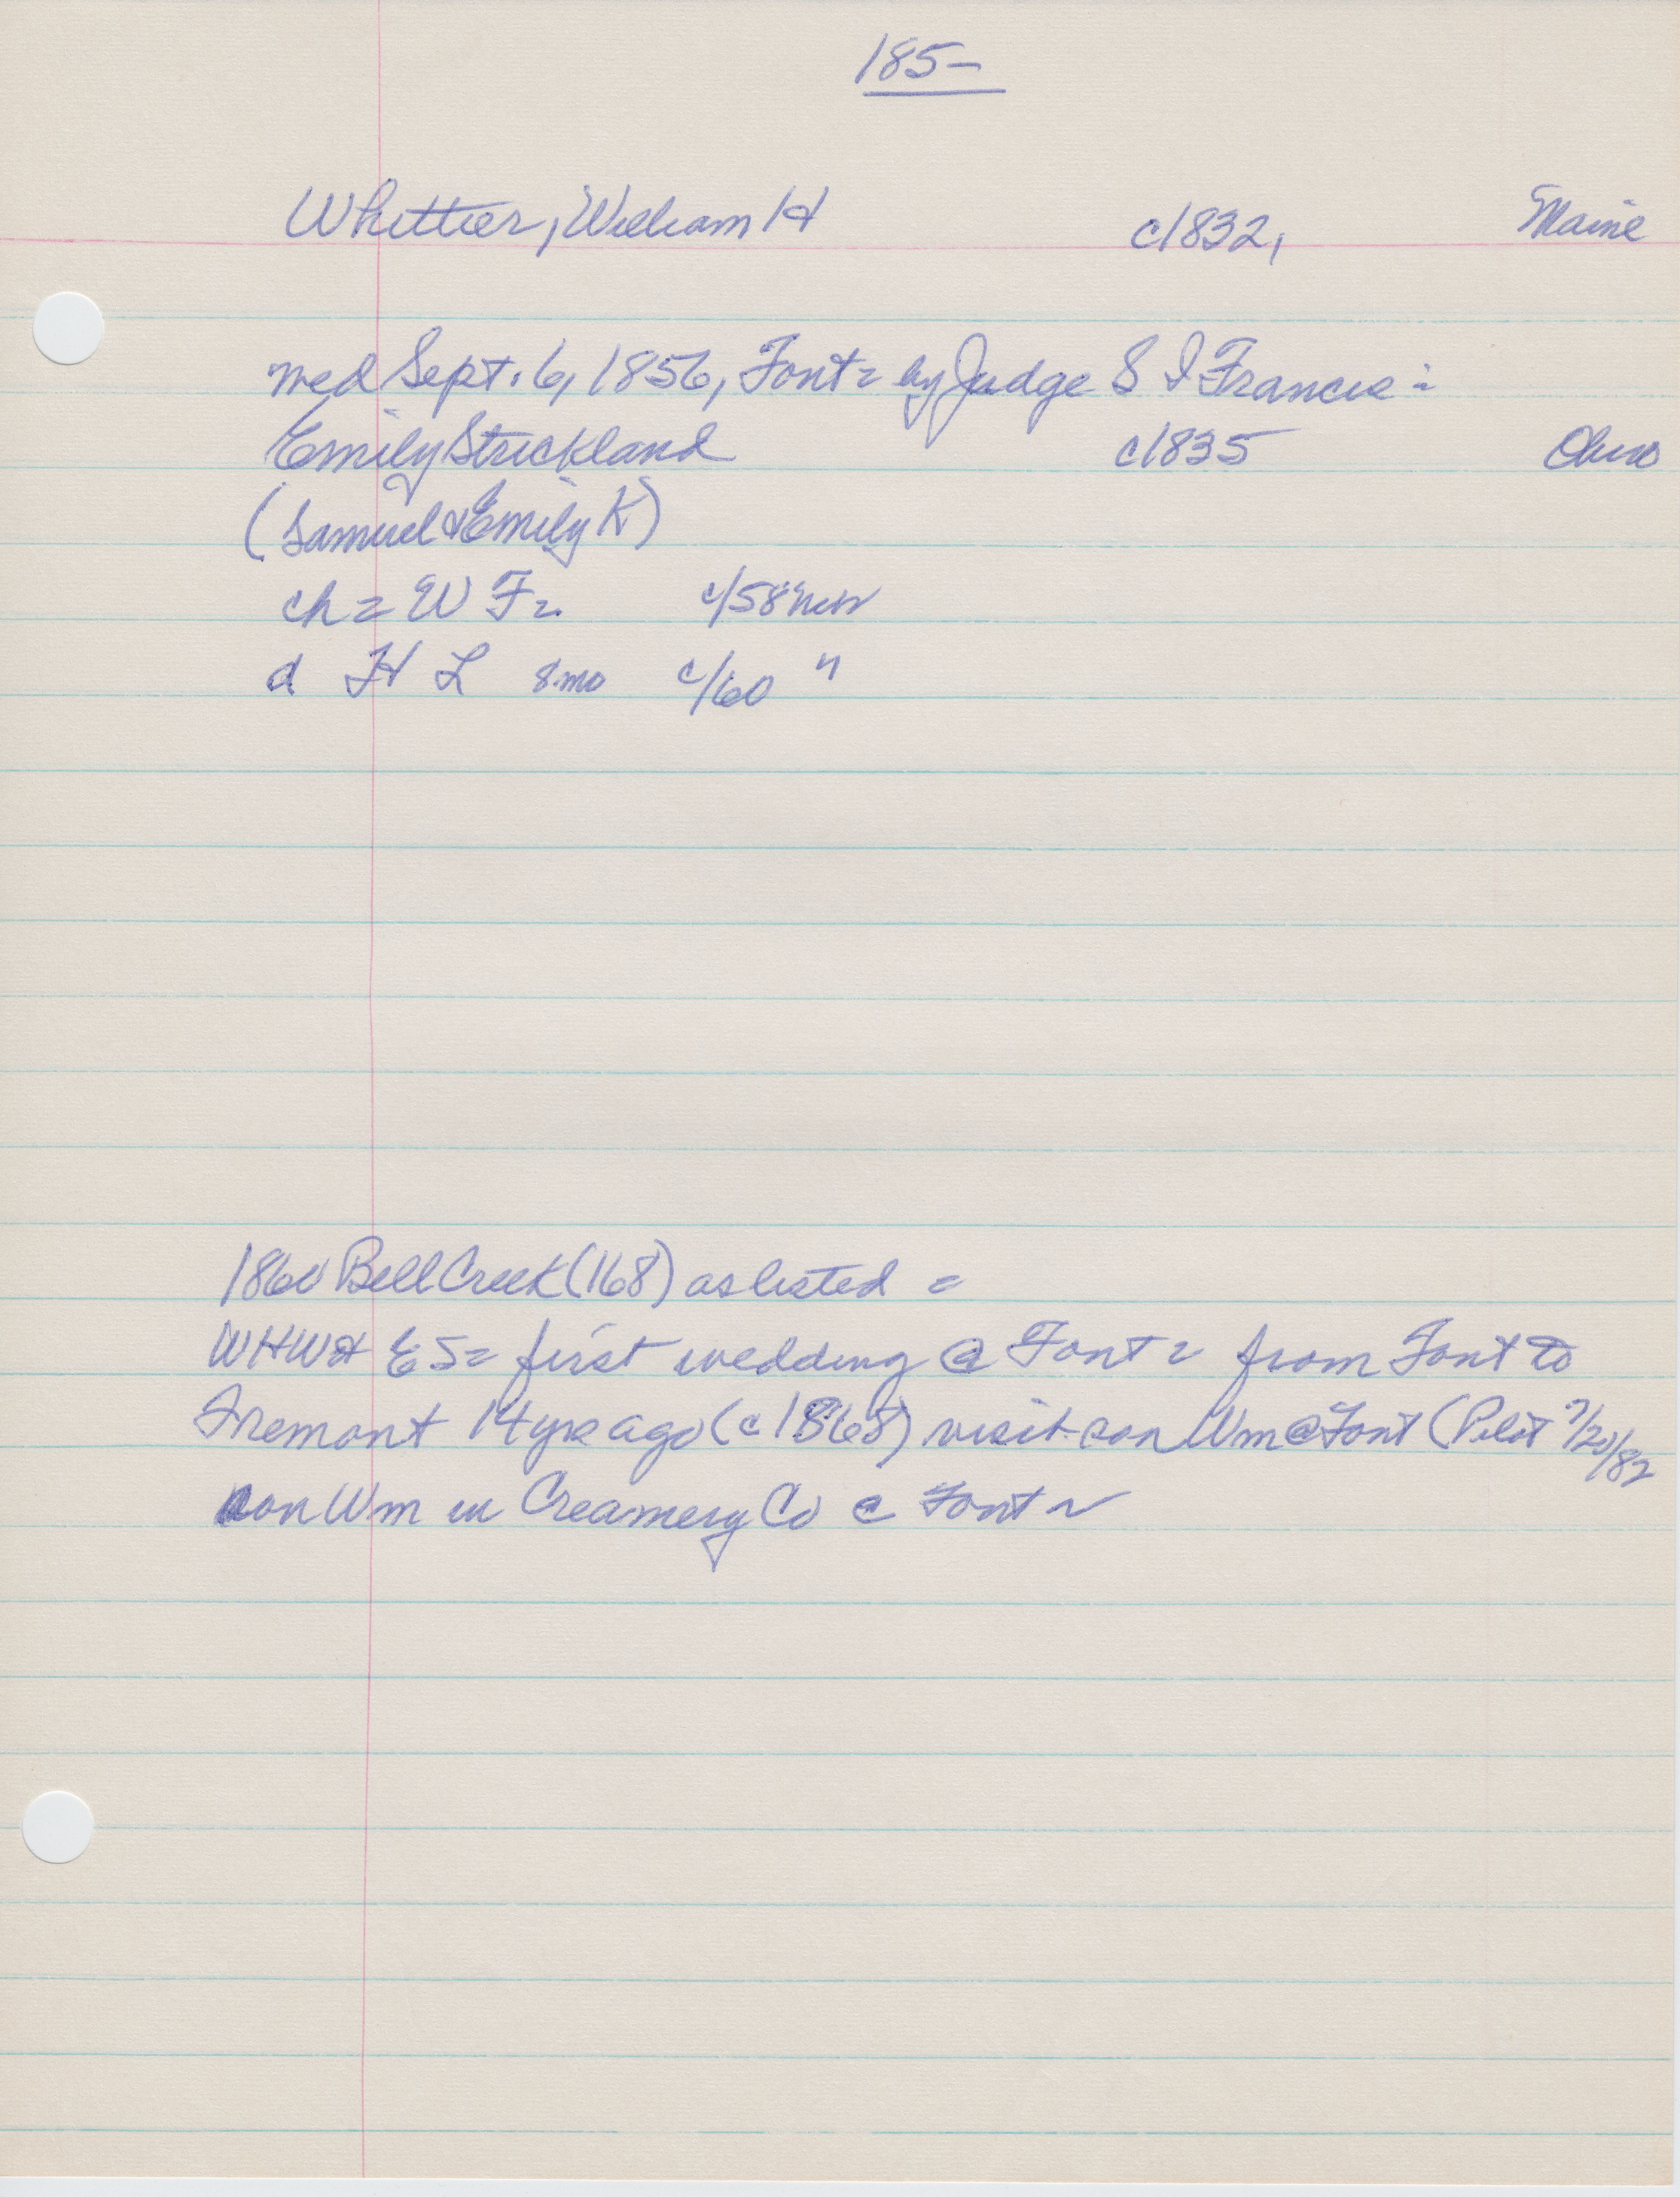 185-
Whittier, William H c1832, Maine
med Sept. 6, 1856, Font = by Judge S I Francis =
Emily Strickland c1835 Ohio
(Samuel & Emily K)
ch = W F = c/58 Neb
d H L 8 mo c/60 "
1860 Bell Creek (168) as listed =
WHW & ES = first wedding @ Font = from Font to
Fremont 14 yrs ago (c 1868) visit son Wm @ Font (Pilot 7/20/82
son Wm in Creamery Co @ Font ~